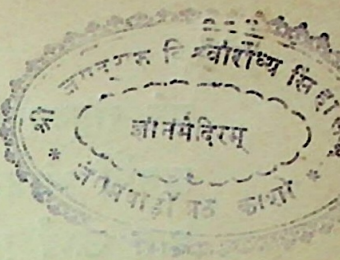 श्री जगद्गुरु विश्वाराध्य सिंहा
ज्ञानमंदिरम्
* जंगमवाड़ी मठ *